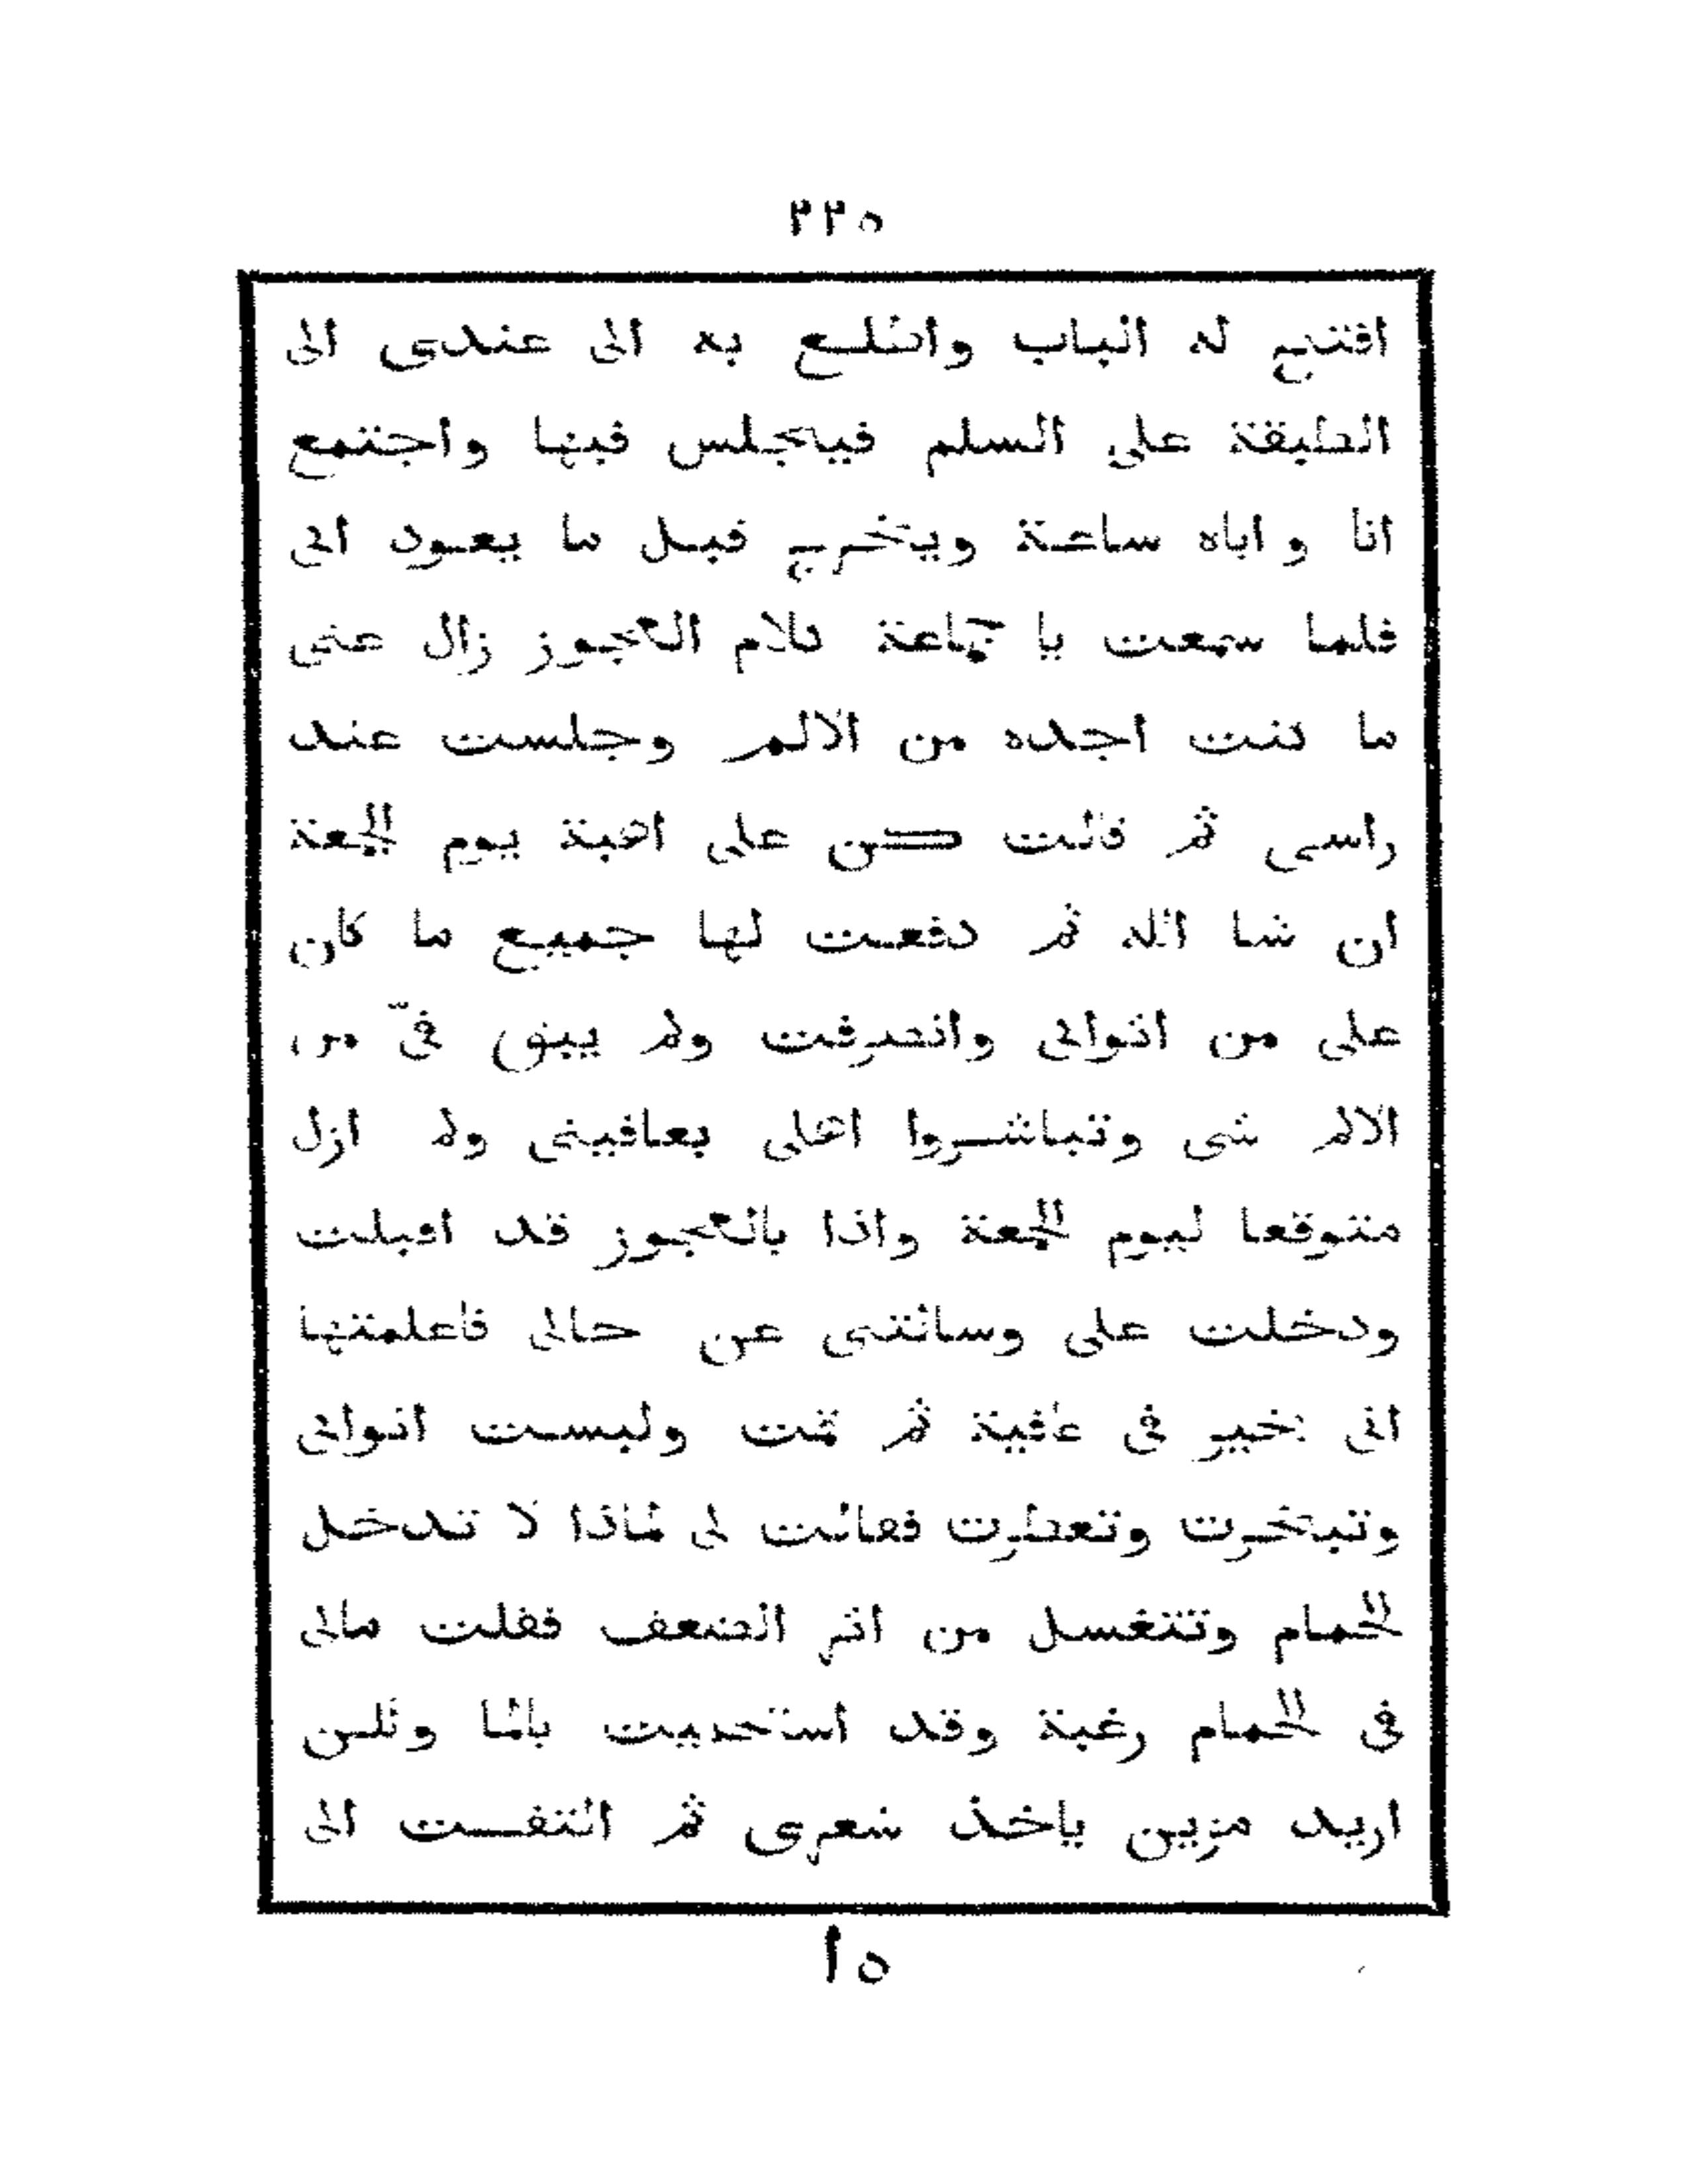 ٢٢٥
افتح له الباب واطلع به الى عندى الى
الطبقة على السلم فيجلس فيها واجتمع
انا واياه ساعة ويخرج قبل ما يعود ابى
فلما سمعت يا جماعة كلام العجوز زال عنى
ما كنت اجده من الالم وجلست عند
راسى ثم قالت كن على اهبة يوم الجمعة
ان شا الله ثم دفعت لها جميع ما كان
على من اثوابى وانصرفت ولم يبق فىّ من
الالم شى وتباشروا اهلى بعافيتى ولم ازل
متوقعا ليوم الجمعة واذا بالعجوز قد اقبلت
ودخلت على وسالتنى عن حالى فاعلمتها
انى بخير فى عافية ثم قمت ولبست اثوابى
وتبخرت وتعطرت فقالت لى لماذا لا تدخل
الحمام وتتغسل من اثر الضعف فقلت مالى
فى الحمام رغبة وقد استحميت بالما ولكن
اريد مزين ياخذ شعرى ثم التفت الى
١٥